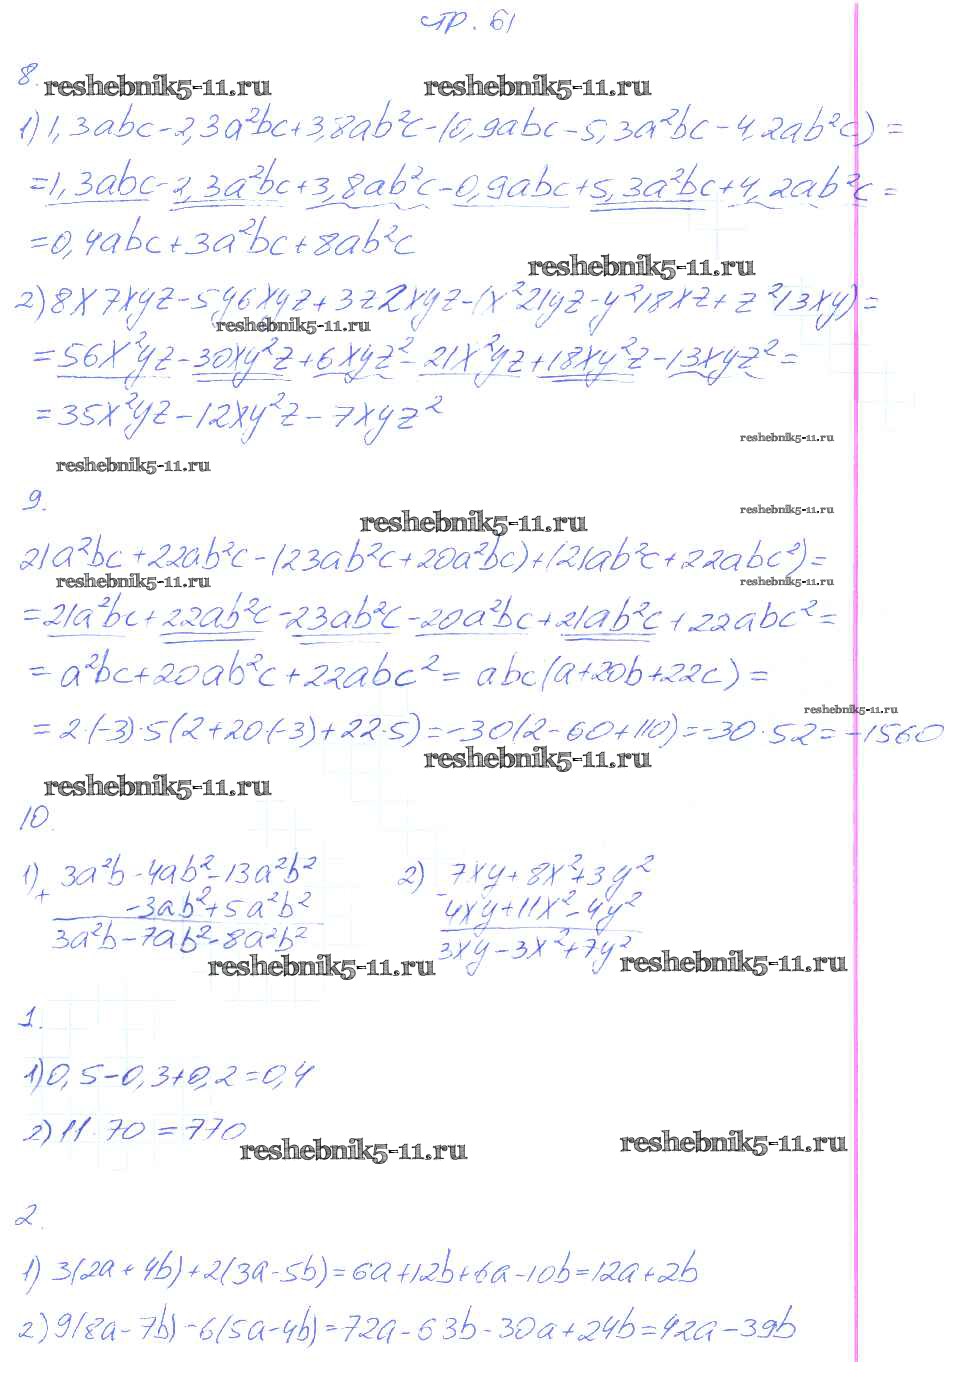 стр. 61
8. reshebnik5-11.ru reshebnik5-11.ru
1) 1,3abc-2,3a²bc+3,8ab²c-(0,9abc-5,3a²bc-4,2ab²c)=
=1,3abc-2,3a²bc+3,8ab²c-0,9abc+5,3a²bc+4,2ab²c=
=0,4abc+3a²bc+8ab²c
reshebnik5-11.ru
2) 8x7xyz-5y6xyz+3z2xyz-(x²21yz-y²18xz+z²13xy)=
reshebnik5-11.ru
=56x²yz-30xy²z+6xyz²-21x²yz+18xy²z-13xyz²=
=35x²yz-12xy²z-7xyz²
reshebnik5-11.ru
reshebnik5-11.ru
9.
reshebnik5-11.ru
reshebnik5-11.ru
21a²bc+22ab²c-(23ab²c+20a²bc)+(21ab²c+22abc²)=
reshebnik5-11.ru reshebnik5-11.ru
=21a²bc+22ab²c-23ab²c-20a²bc+21ab²c+22abc²=
=a²bc+20ab²c+22abc²=abc(a+20b+22c)=
reshebnik5-11.ru
=2·(-3)·5(2+20(-3)+22·5)=-30(2-60+110)=-30·52=-1560
reshebnik5-11.ru
reshebnik5-11.ru
10.
1) 3a²b-4ab²-13a²b² 2) 7xy+8x²+3y²
+ -3ab²+5a²b² - 4xy+11x²-4y²
3a²b-7ab²-8a²b² 3xy-3x²+7y²
reshebnik5-11.ru reshebnik5-11.ru
1.
1) 0,5-0,3+0,2=0,4
2) 11·70=770
reshebnik5-11.ru reshebnik5-11.ru
2.
1) 3(2a+4b)+2(3a-5b)=6a+12b+6a-10b=12a+2b
2) 9(8a-7b)-6(5a-4b)=72a-63b-30a+24b=42a-39b